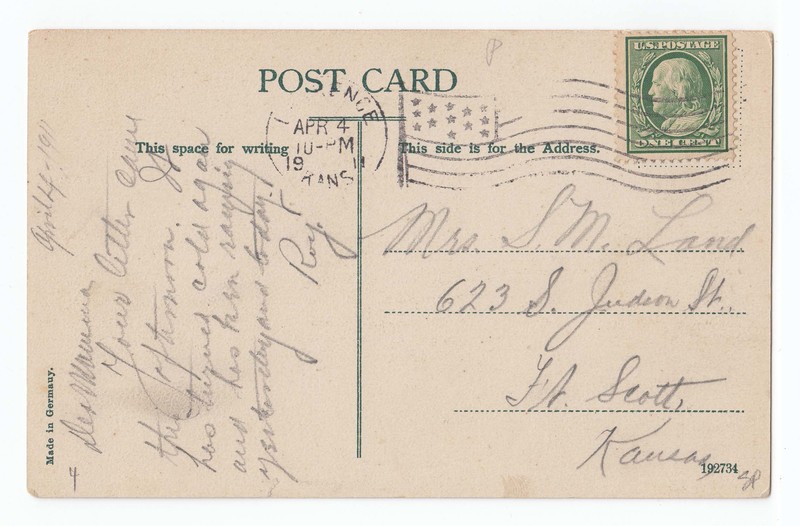 POST CARD
This space for writing
This side is for the Address.
U.S. POSTAGE
ONE CENT
ENCE
APR 4
10-PM
19 11
ANS
April 4-1911
Dear Mamma
Your letter came
this afternoon. It
has turned cold again
and has been raining
yesterday and today.
Roy.
Mrs. S. M. Land
623 S. Judson St.
Ft. Scott,
Kansas
Made in Germany.
192734